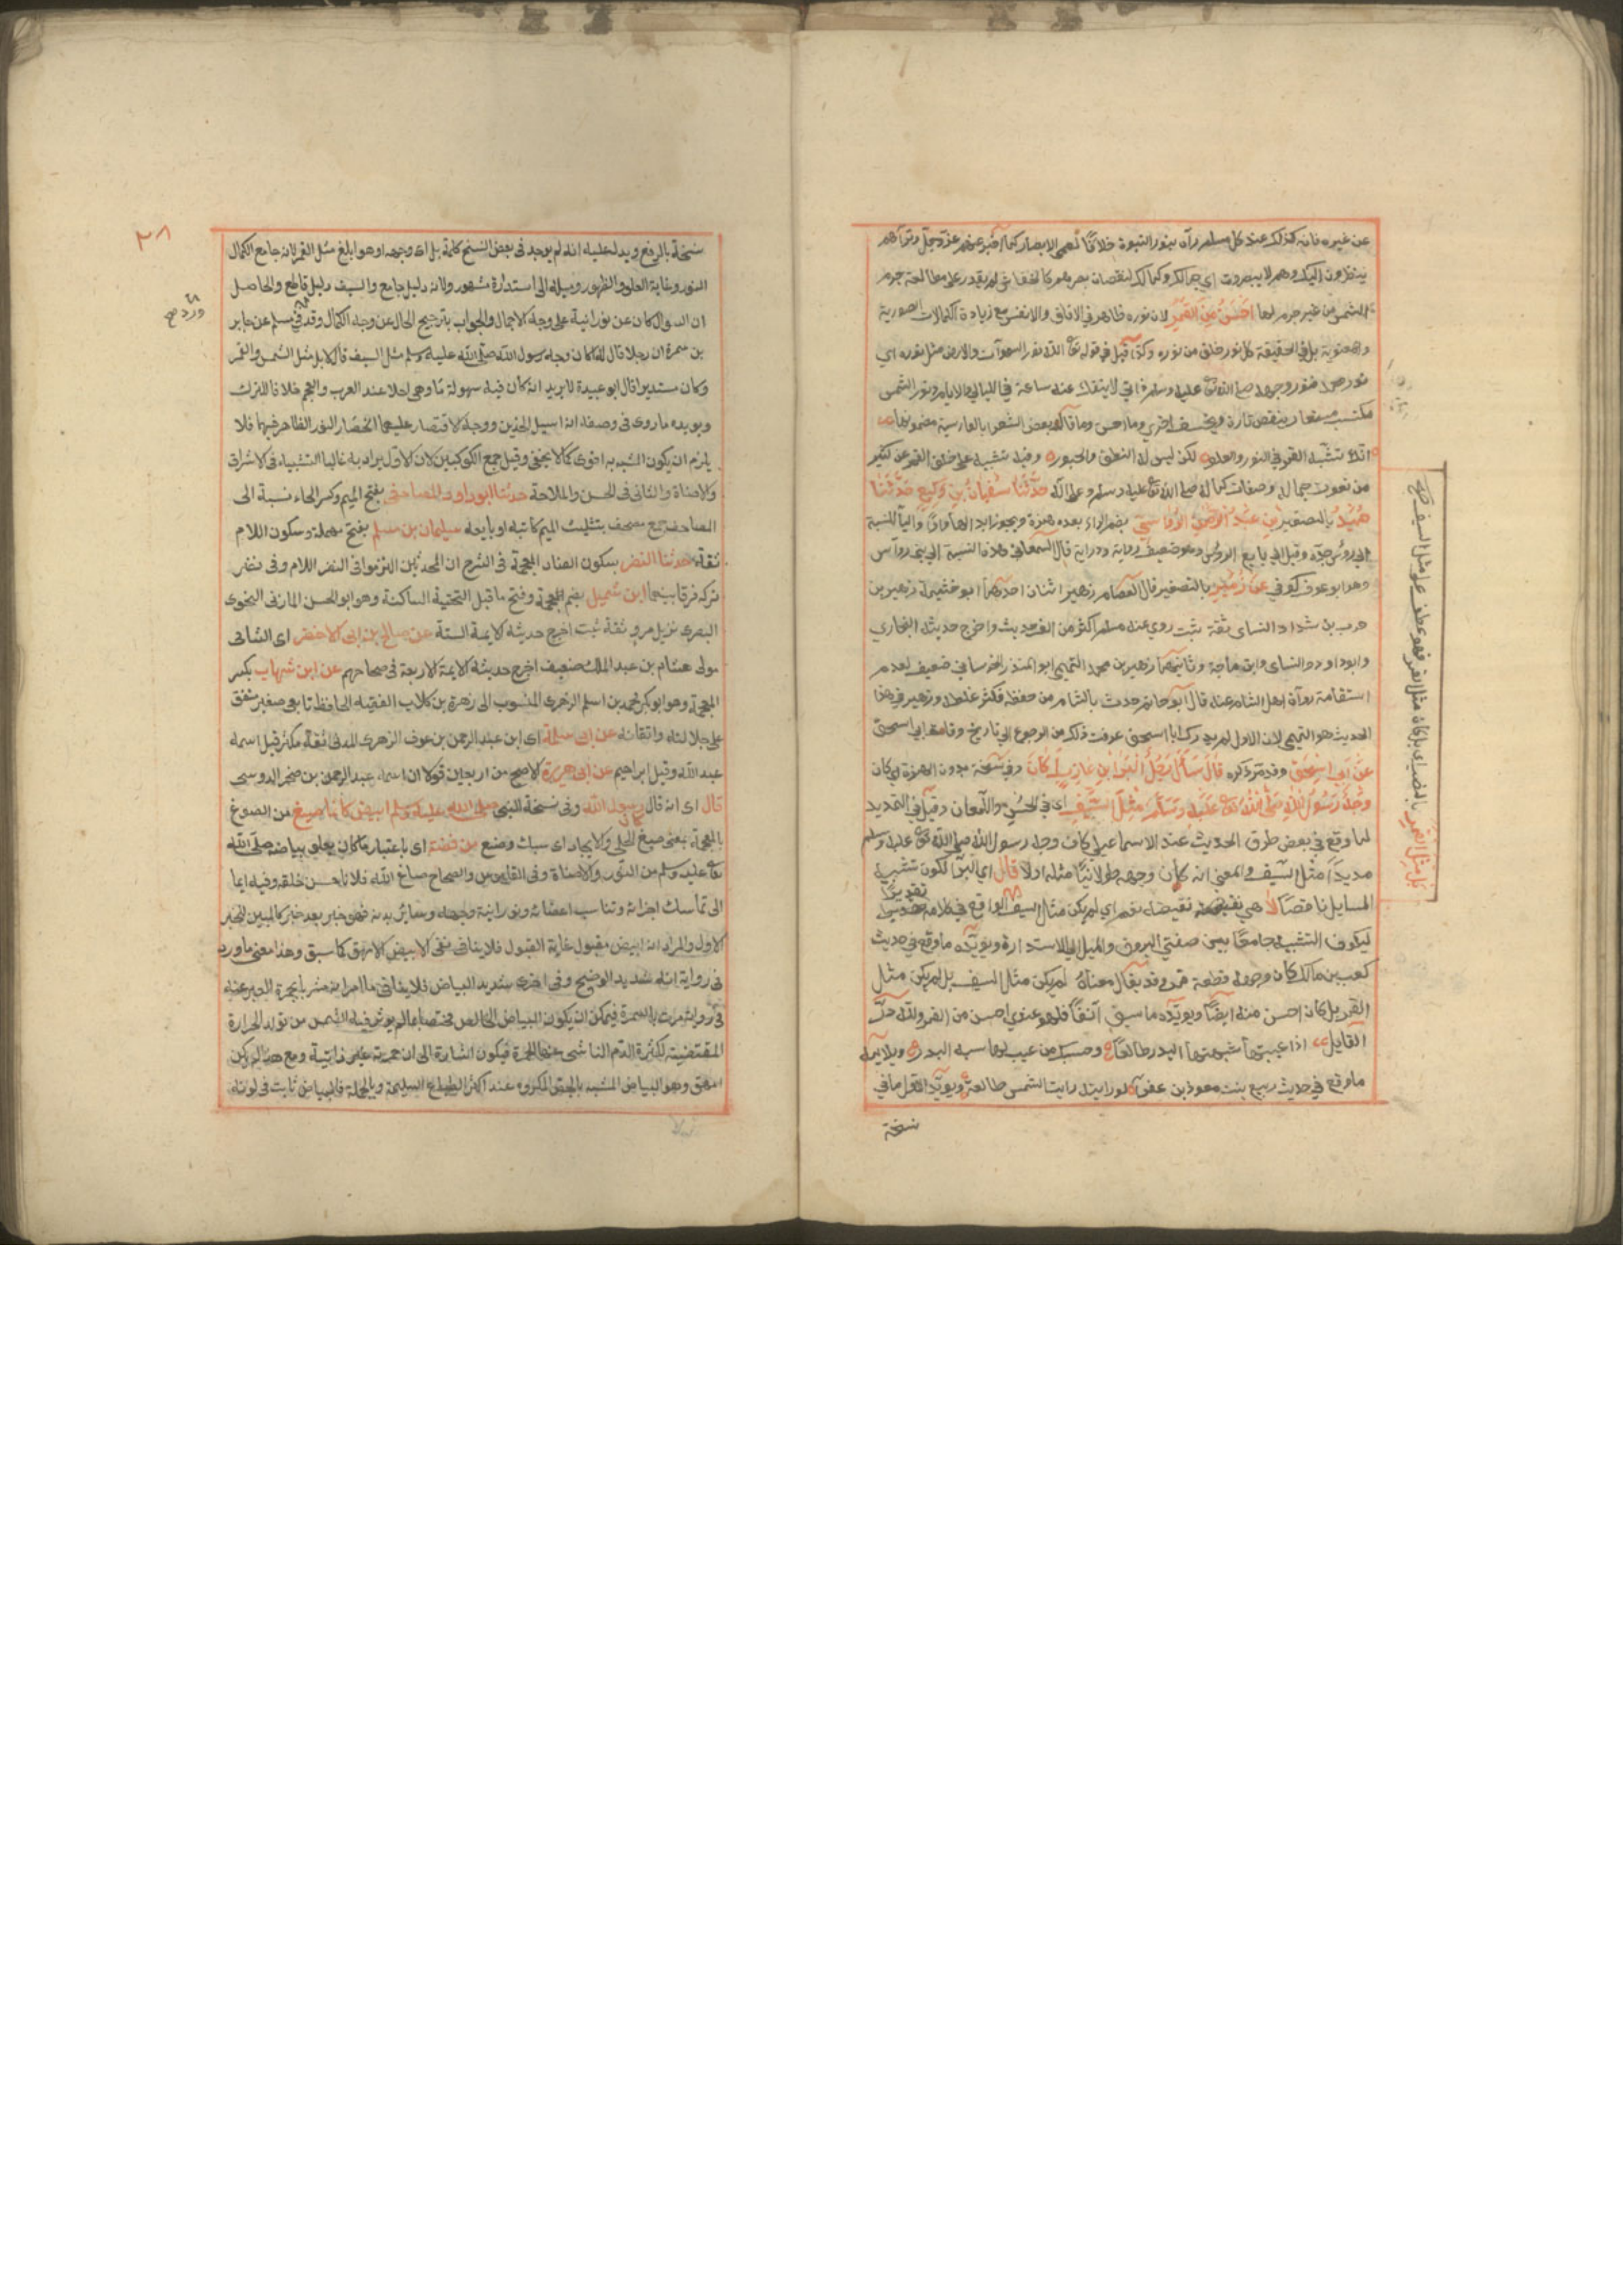 عن غيره فانه كذلك عند كل مسلم رآه بنور النبوة خلافا لعمى الابصار كما اخبر عنهم عز وجل وتراهم
ينظرون اليك وهم لا يبصرون اى جمالك وكمالك لنقصان بصرهم كالخفاش لم يقدر على مطالعة جرم
الشمس من غير جرم لها احسن من القمر لان نوره ظاهر في الافاق والانفس مع زيادة الكمالات الصورية
والمعنوية بل في الحقيقة كل نور خلق من نوره وكذا قيل في قوله تع الله نور السموات والارض مثل نوره اى
نور محمد فنور وجهه صلى الله تع عليه وسلم ذاتي لا ينفك عنه ساعة في الليالي والايام ونور الشمس
مكتسب مستعار ينقص تارة ويخسف اخرى وما احسن وما قاله بعض الشعرا بالفارسية مضمونها
انه تشبه القمر في النور والعلو لكن ليس له النطق والحبور وفيه تنبيه على خلو القمر عن كثير
من نعوت جماله وصفات كماله صلى الله تع عليه وسلم وعلى آله حدثنا سفيان بن وكيع حدثنا
حميد بالتصغير بن عبد الرحمن الرؤاسي بضم الراء بعده همزة ويجوز ابدالها واوا واليا للنسبة
الى رؤس جده وقيل الى بايع الرؤس وهو ضعيف رواية ودراية قال السمعانى هذه النسبة الى بنى رؤاس
وهو ابو عوف كوفي عن زهير بالتصغير قال العصام زهير اثنان احدهما ابو خثيمة زهير بن
حرب بن شداد النساى ثقة ثبت روى عنه مسلم اكثر من الف حديث واخرج حديثه البخاري
وابو داود والنساى وابن ماجة وثانيهما زهير بن محمد التميمي ابو المنذر الخرساني ضعيف لعدم
استقامة رواة اهل الشام عنه قال ابو حاتم حدث بالشام من حفظه فكثر غلطه وزهير في هذا
الحديث هو التميمي لان الاول لم يدرك ابا اسحق عرفت ذلك من الرجوع الى تاريخ وفاة ابي اسحق
عن ابي اسحق وقد مر ذكره قال سال رجل البرا بن عازب اكان وفي نسخة بدون الهمزة اى كان
وجه رسول الله صلى الله تع عليه وسلم مثل السيف اى في الحسن واللمعان وقيل في التحديد
لما وقع في بعض طرق الحديث عند الاسماعيلي كان وجه رسول الله صلى الله تع عليه وسلم
مديدا مثل السيف والمعنى انه كان وجهه طولانيا مثله اولا قال اى البرا لكون تشبيه
المسايل ناقصا لا هي نقيض نقيضه نعم اى لم يكن مثل السيف الواقع في كلامه تقديرا
ليكون التشبيه جامعا بين صفتي البروق والميل الى الاستدارة ويؤيده ما وقع في حديث
كعب بن مالك كان وجهه قطعة قمر وقد يقال معناه لم يكن مثل السيف بل لم يكن مثل
القمر بل كان احسن منه ايضا ويؤيده ما سبق آنفا فلهو عندي احسن من القمر ولله در
القايل اذا عيبتها شبهتها البدر طالعا وحسبك من عيب لها شبه البدر ويلايمه
ما وقع في حديث ربيع بنت معوذ بن عفرا لو رايته رايت الشمس طالعة ويؤيد الاول ما في
نسخة
بل مثل القمر بالنصب اى بل كان مثل القمر فهو عطف على مثل السيف صح
٢٨
نسخة بالرفع ويدل عليه انه لم يوجد في بعض النسخ كلمة بل اى وجهه او هو ابلغ مثل القمر لانه جامع الكمال
النور وغاية العلو والظهور وميله الى استدارة مشهور ولانه دليل جامع والسيف دليل قاطع والحاصل
ان السوال كان عن نورانية على وجه الاجمال والجواب بترجيح الحال عن وجه الكمال وقد في مسلم عن جابر
ورد صح
بن سمرة ان رجلا قال له اكان وجه رسول الله صلى الله عليه وسلم مثل السيف قال لا بل مثل الشمس والقمر
وكان مستديرا قال ابو عبيدة لا يريد انه كان فيه سهولة ما وهى احلا عند العرب والعجم خلافا للترك
ويويده ما روى في وصفه انه اسيل الخدين ووجه الاقتصار عليهما انحصار النور الظاهر فيهما فلا
يلزم ان يكون المشبه به اقوى كما لا يخفى وقيل جمع الكوكبين لان الاول يراد به غالبا التشبيه في الاشراق
والاضاة والثاني في الحسن والملاحة حدثنا ابو داود المصاحفى بفتح الميم وكسر الحاء نسبة الى
المصاحف جمع مصحف بتثليث الميم كاتبه او بايعه سليمان بن سلم بفتح مهملة وسكون اللام
ثقة حدثنا النضر بسكون الضاد المعجمة في الشرح ان المحدثين التزموا في النضر اللام وفى نضر
تركه فرقا بينهما ابن شميل بضم المعجمة وفتح ما قبل التحتية الساكنة وهو ابو الحسن المازنى النحوى
البصرى نزيل مرو ثقة ثبت اخرج حديثه الايمة الستة عن صالح بن ابى الاخضر اى الشامى
مولى هشام بن عبد الملك ضعيف اخرج حديثه الايمة الاربعة في صحاحهم عن ابن شهاب بكسر
المعجمة وهو ابو بكر محمد بن اسلم الزهرى المنسوب الى زهرة بن كلاب الفقيه الحافظ تابعى صغير متفق
على جلالته واتقانه عن ابى سلمة اى ابن عبد الرحمن بن عوف الزهرى المدنى ثقة مكثر قيل اسمه
عبد الله وقيل ابراهيم عن ابى هريرة الاصح من اربعين قولا ان اسمه عبد الرحمن بن صخر الدوسى
قال اى انه قال كان رسول الله وفى نسخة النبى صلى الله عليه وسلم ابيض كانما صيغ من الصوغ
بالمعجمة بمعنى صيغ الحلى والايجاد اى سبك وصنع من فضة اى باعتبار ما كان يعلو بياضه صلى الله
تع عليه وسلم من النور والاضاة وفى القاموس والصحاح صاغ الله فلانا حسن خلقه وفيه ايما
الى تماسك اجزائه وتناسب اعضائه ونورانية وجهه وسائر بدنه فهو خبر بعد خبر كالمبين للخبر
الاول والمراد انه ابيض مقبول غاية القبول فلا ينافى نفى الابيض الامهق كما سبق وهذا معنى ما ورد
في رواية انه شديد الوضح وفى اخرى شديد البياض فلا ينافى ما مر انه مشرب بحمرة المعبر عنه
في رواية مرت بالسمرة فيمكن ان يكون البياض الخالص مختصا بما لم يوثر فيه الشمس من تولد الحرارة
المقتضية لكثرة الدم الناشى عنها الحمرة فيكون اشارة الى ان حمرته غير ذاتية ومع هذا لم يكن
امهق وهو البياض المشبه بالجص المكروه عند اكثر الطباع السليمة وبالجملة فالبياض ثابت في لونه